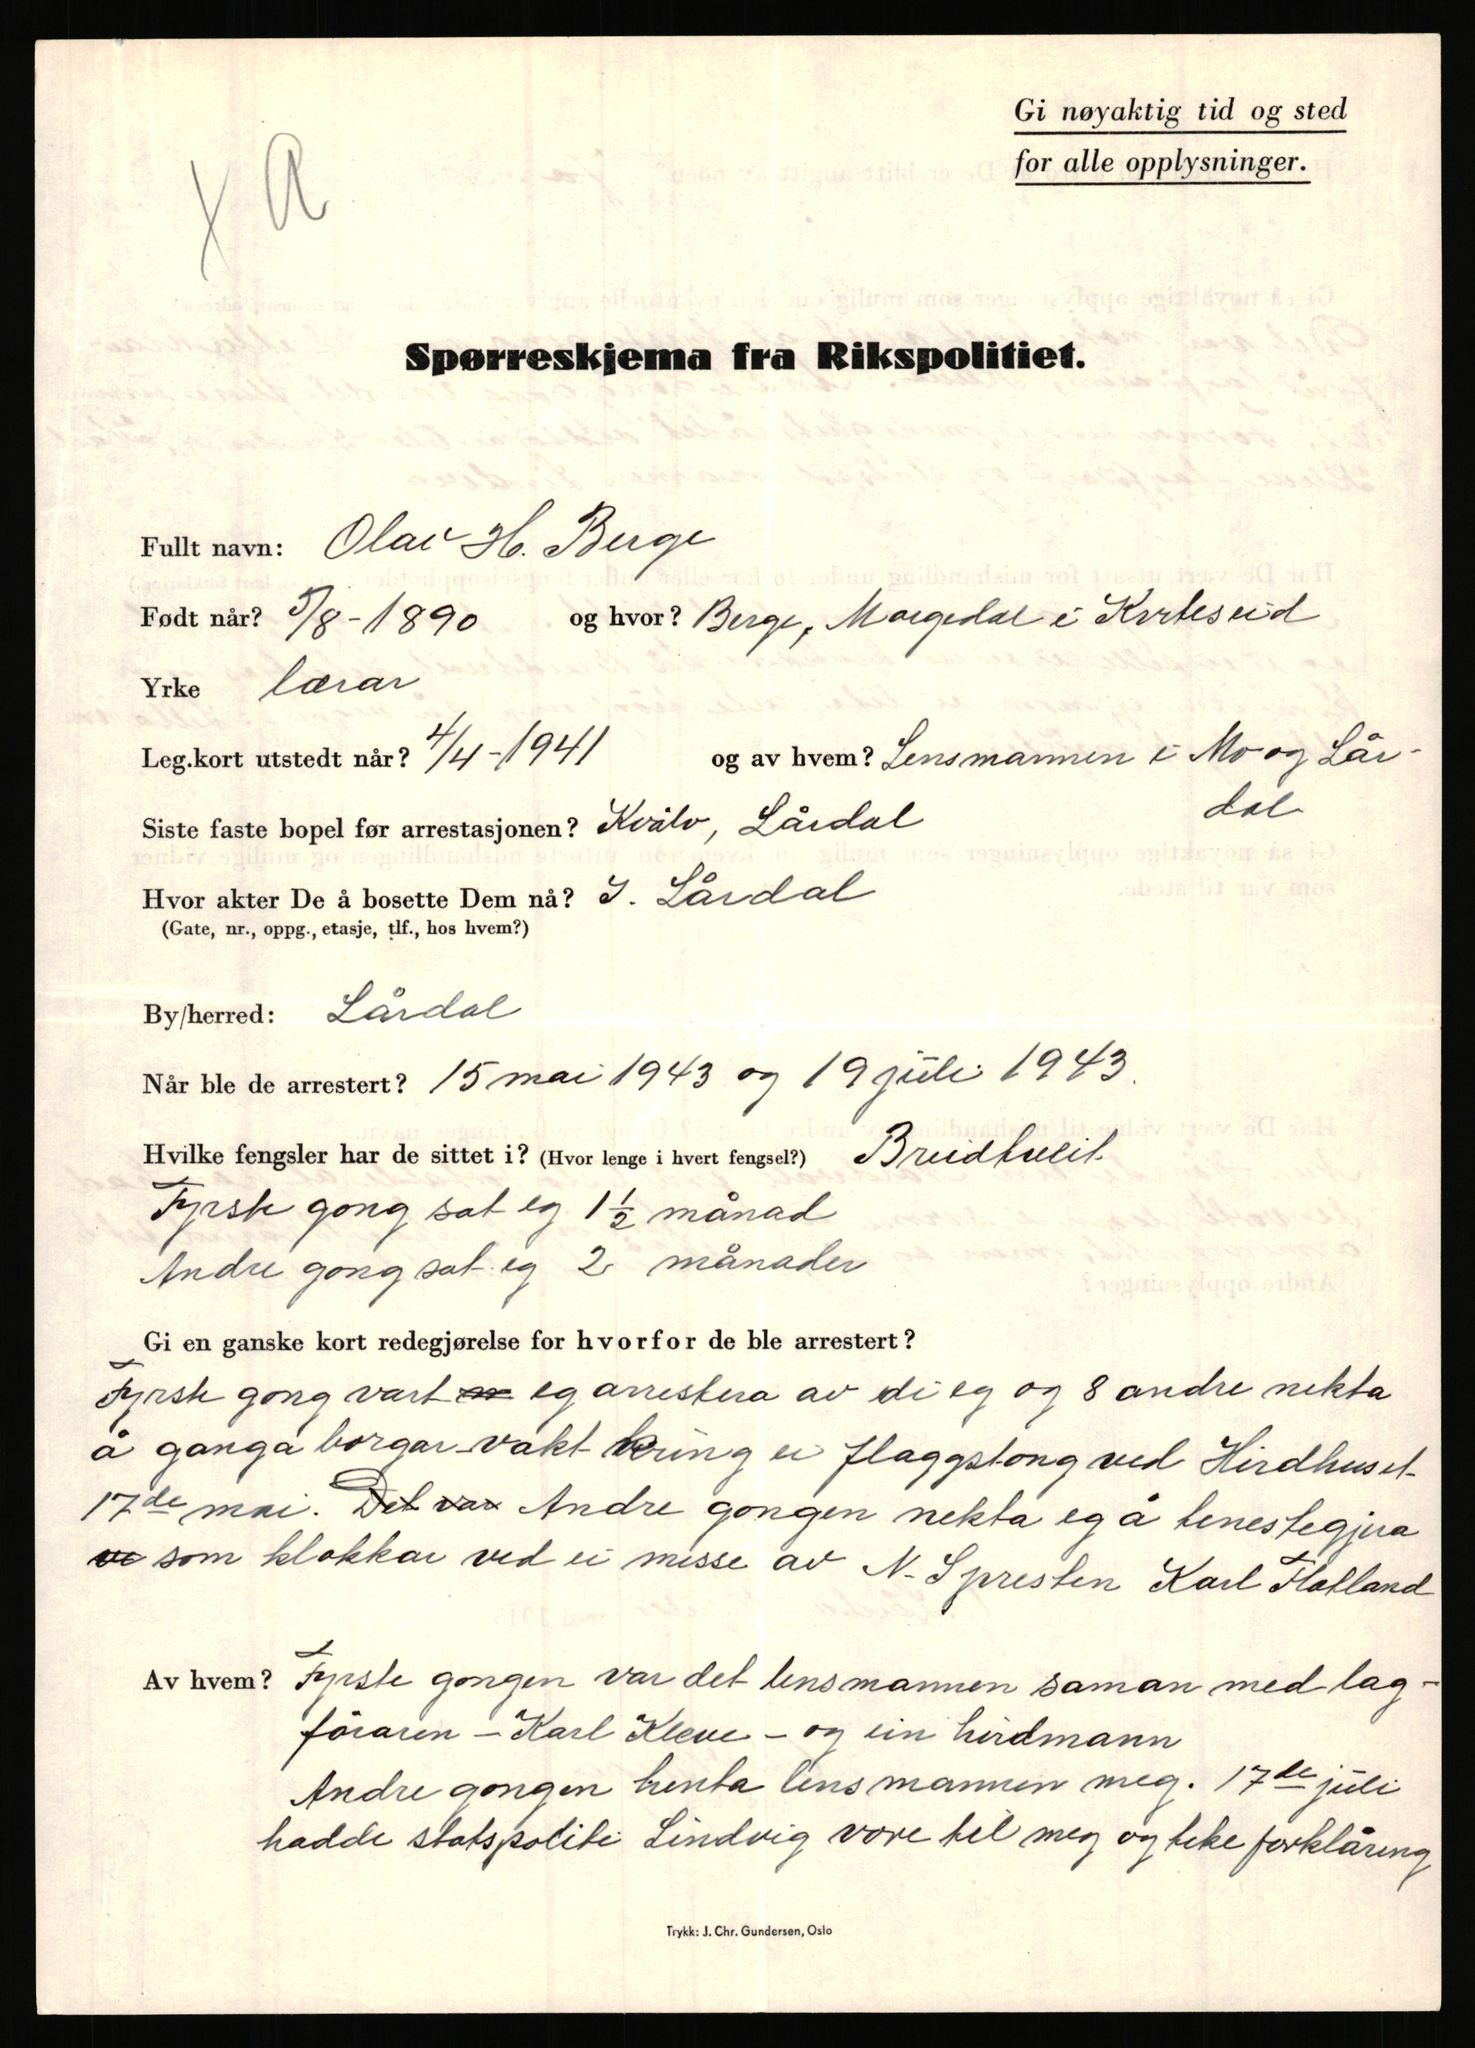 Gi nøyaktig tid og sted
for alle opplysninger.
X A
Spørreskjema fra Rikspolitiet.
Fullt navn: Olav H. Berge
Født når? 5/8-1890 og hvor? Berge, Morgedal i Kviteseid
Yrke lærar
Leg.kort utstedt når? 4/4-1941 og av hvem? Lensmannen i Mo og Lår-
dal
Siste faste bopel før arrestasjonen? Kvålo, Lårdal
Hvor akter De å bosette Dem nå? I Lårdal
(Gate, nr., oppg., etasje, tlf., hos hvem?)
By/herred: Lårdal
Når ble de arrestert? 15 mai 1943 og 19 juli 1943.
Hvilke fengsler har de sittet i? (Hvor lenge i hvert fengsel?) Breidtveit
Fyrste gong sat eg 1½ månad
Andre gong sat eg 2 månader
Gi en ganske kort redegjørelse for hvorfor de ble arrestert?
Fyrste gong vart eg arrestera av di eg og 8 andre nekta
å ganga borgar-vakt kring ei flaggstong ved Hirdhuset
17de mai. Det var Andre gongen nekta eg å tenestegjera
som klokkar ved ei messe av N.S presten Karl Flatland
Av hvem? Fyrste gongen var det lensmannen saman med lag-
føraren – Karl Kleve – og ein hirdmann
Andre gongen henta lensmannen meg. 17de juli
hadde statspoliti Lindvig vore til meg og teke forklåring
Trykk: J. Chr. Gundersen, Oslo